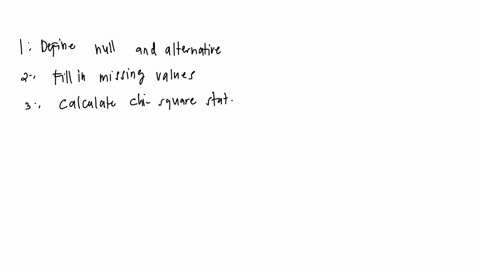 1:. Define null and alternative
2:. Fill in missing values
3:. Calculate chi-square stat.